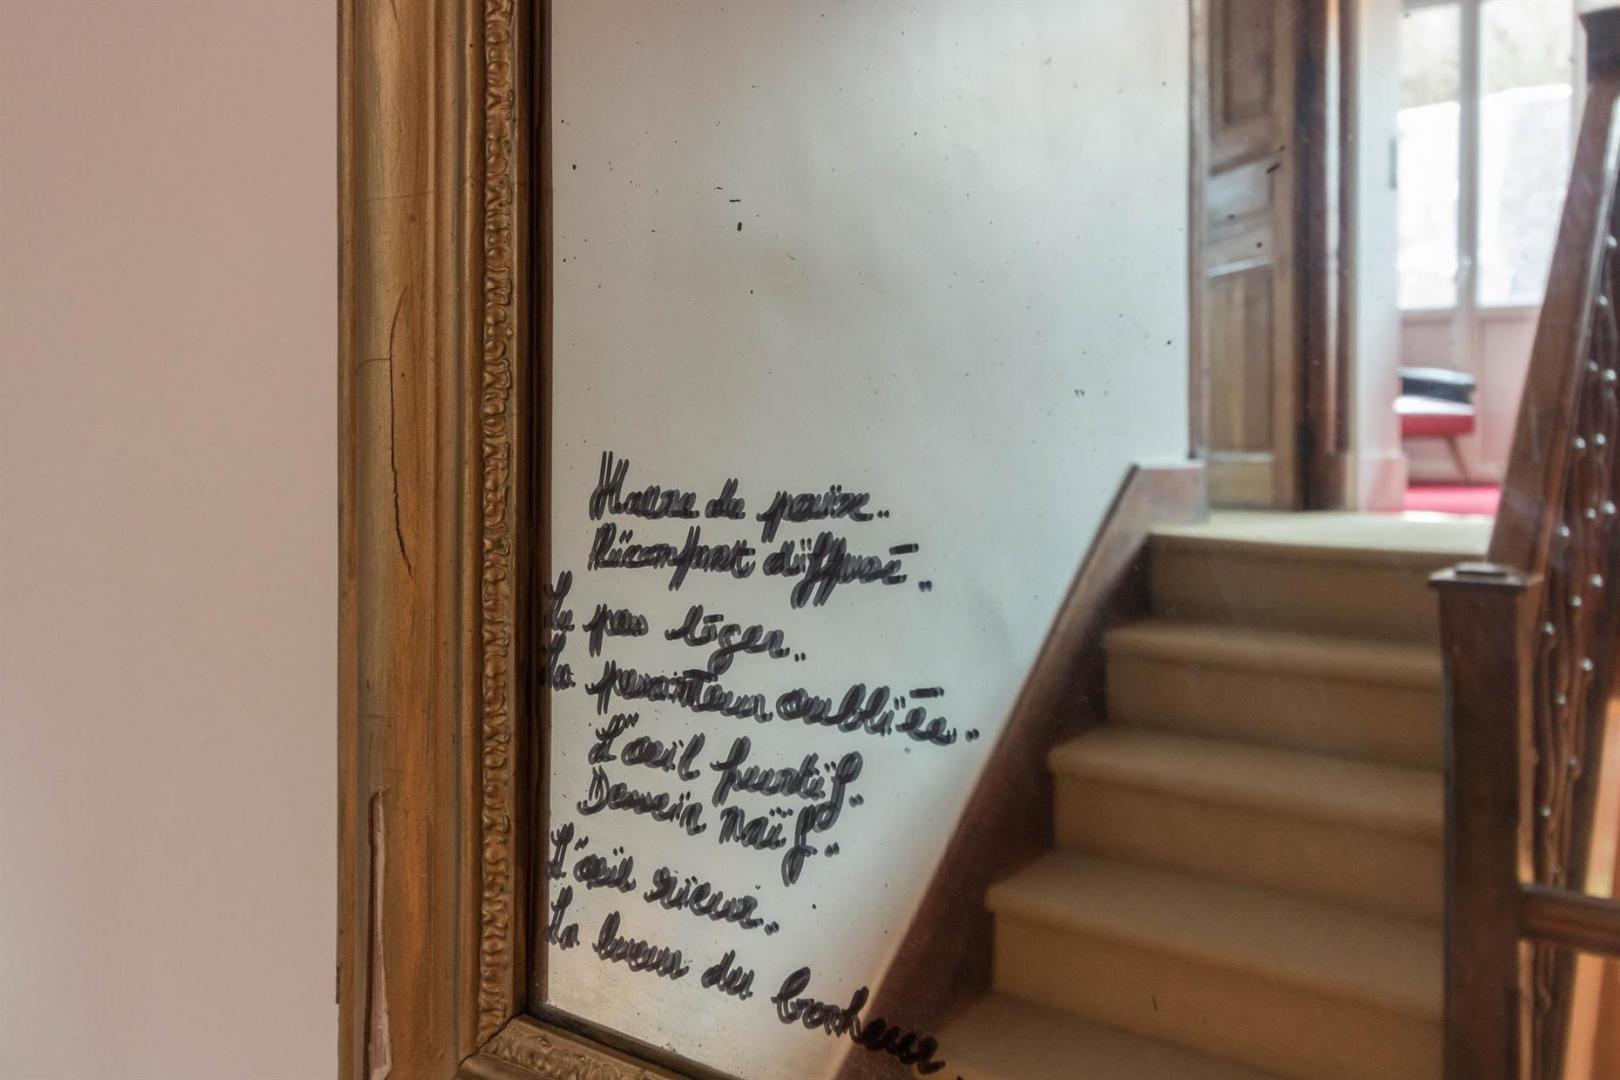 Havre de paix.
Réconfort diffusé.
Le pas léger.
La pesanteur oubliée.
L'œil furtif.
Dessein naïf.
L'œil rieur.
La lueur du bonheur